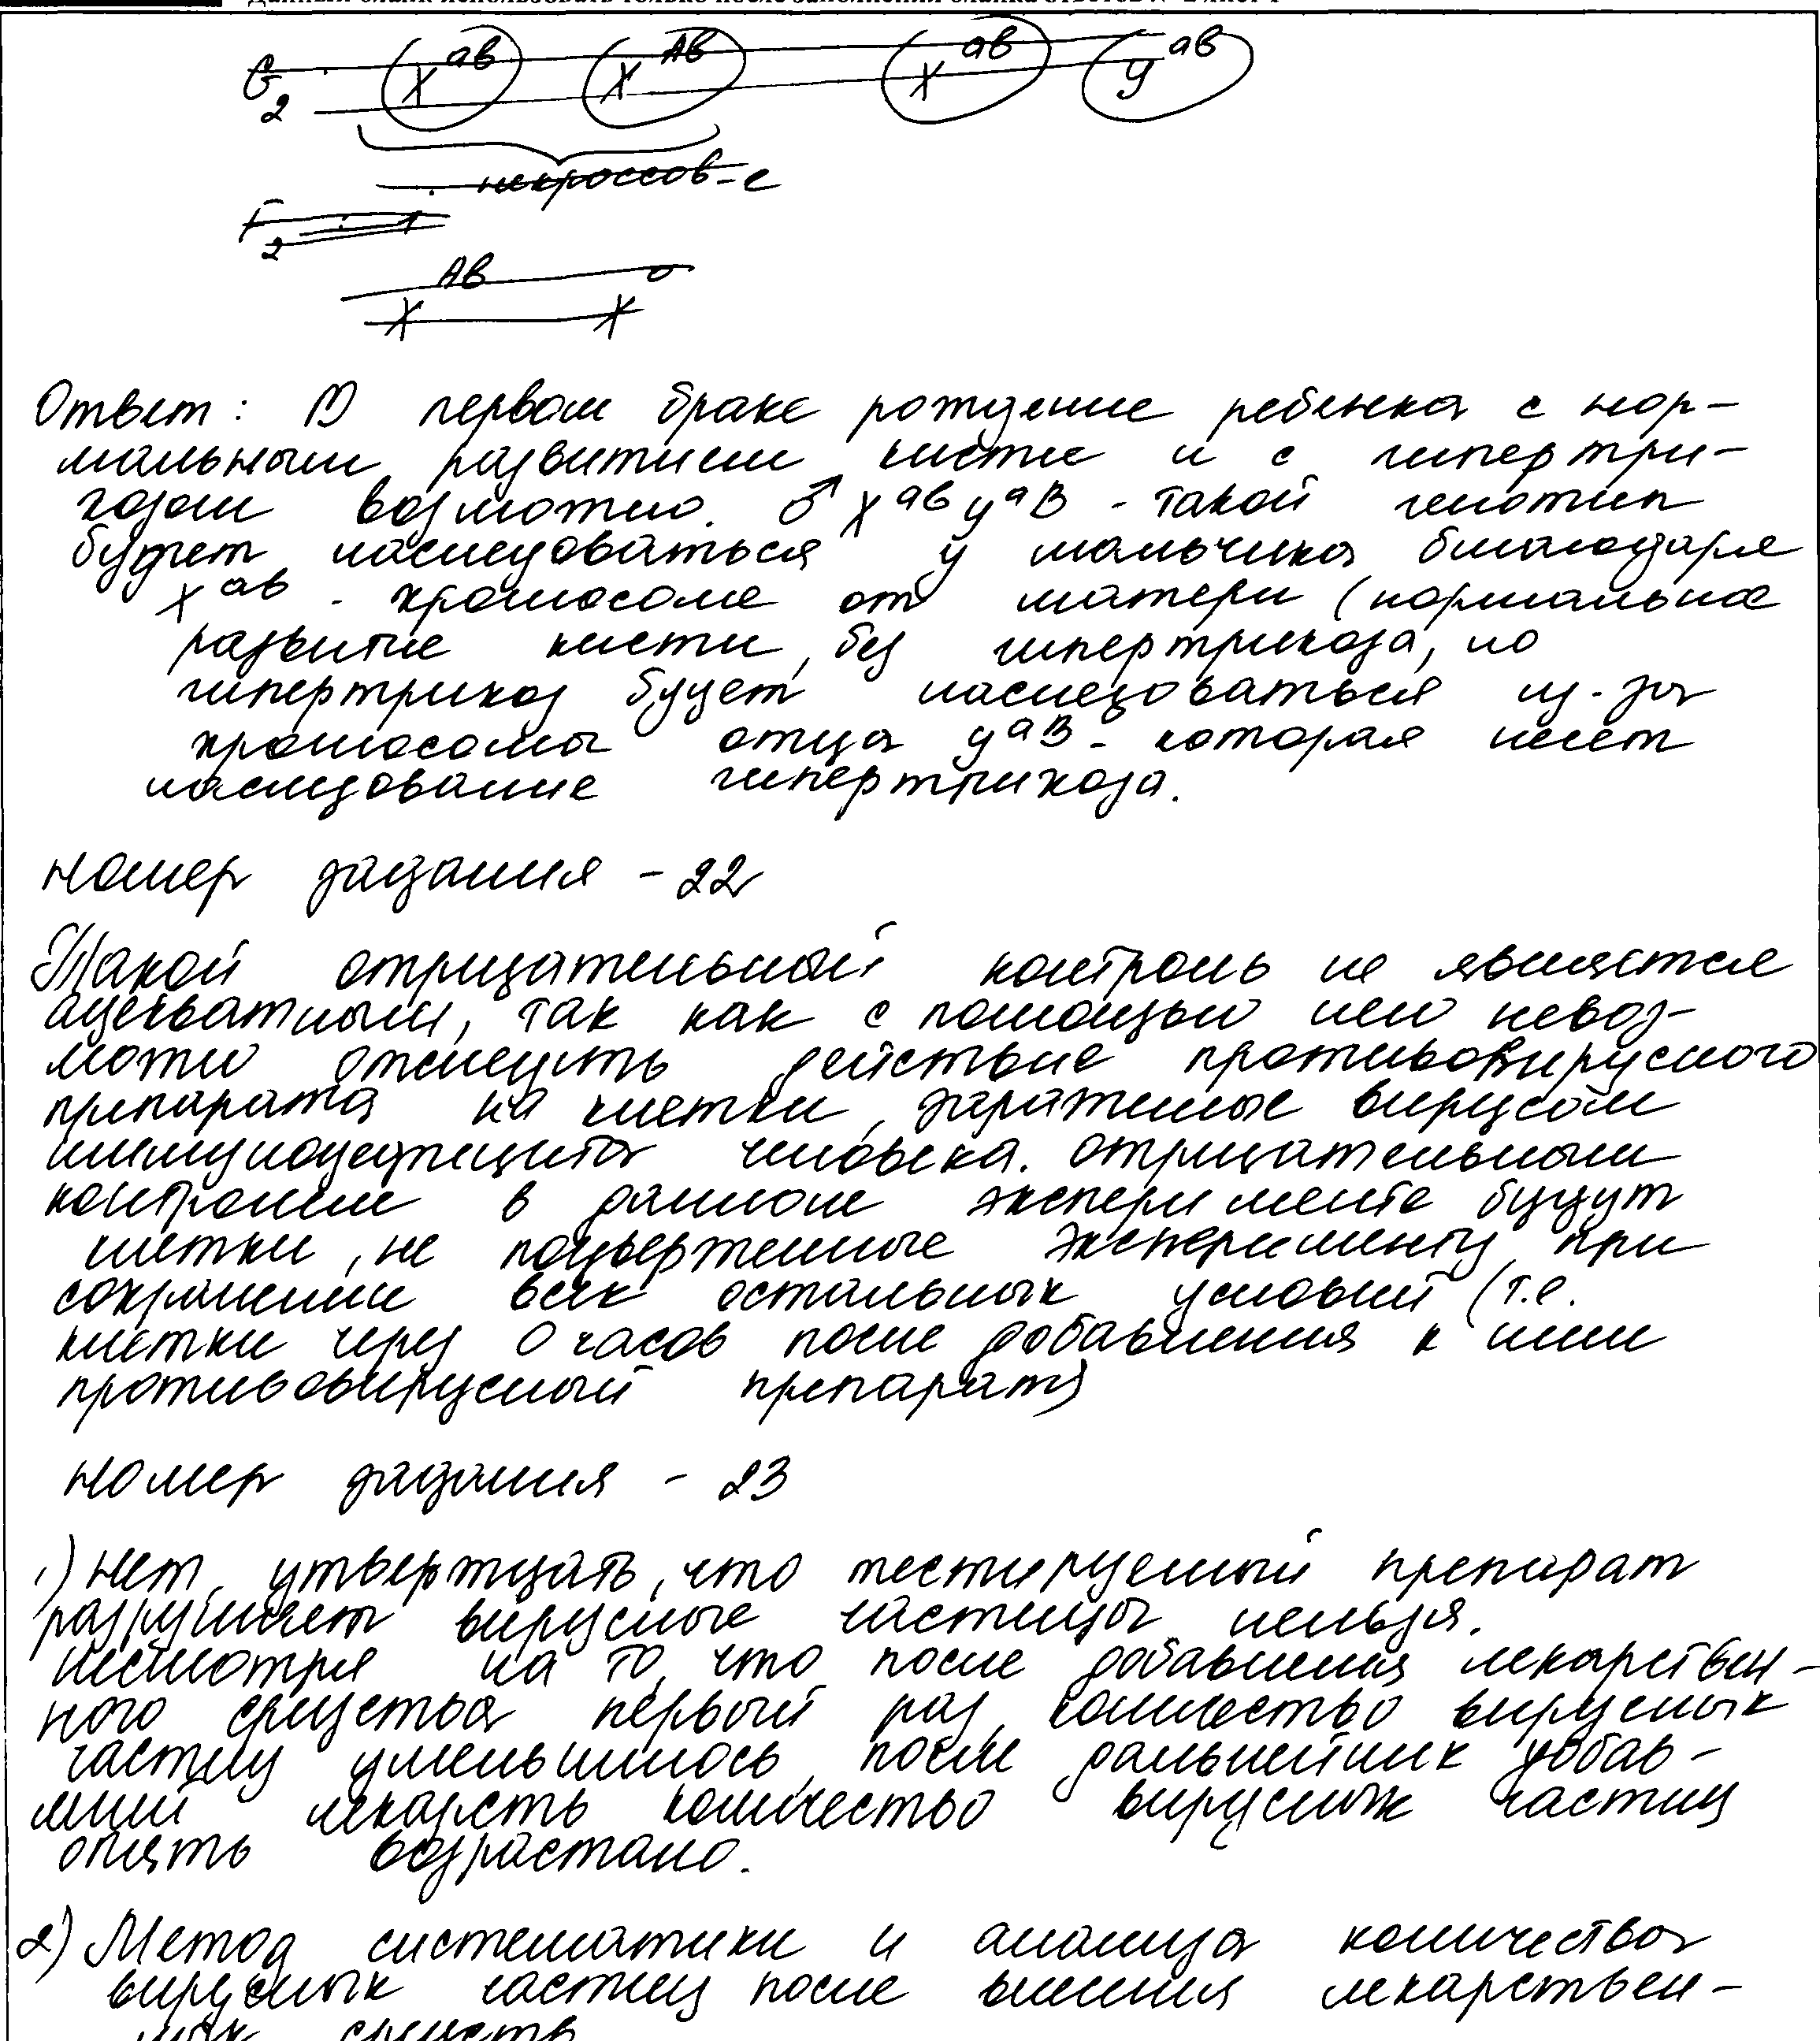 Данный бланк использовать только после заполнения бланка ответов № 2 лист 1
G2 X ab X Ab X ab y ab
некроссов-е
F2
Ab
X X
Ответ: 1) В первом браке рождение ребенка с нор-
мальным развитием кисти и с гипертри-
хозом возможно. ♂ X ab y aB - такой генотип
будет наследоваться у мальчика благодаря
X ab - хромосоме от матери (нормальное
развитие кисти, без гипертрихоза, но
гипертрихоз будет наследоваться из-за
хромосомы отца y aB - которая несет
наследование гипертрихоза.
Номер задания - 22
Такой отрицательный контроль не является
адекватным, так как с помощью него невоз-
можно отследить действие противовирусного
препарата на клетки, зараженные вирусом
иммунодефицита человека. Отрицательным
контролем в данном эксперименте будут
клетки, не подверженные эксперименту при
сохранении всех остальных условий (т.е.
клетки через 0 часов после добавления к ним
противовирусный препарат)
Номер задания - 23
1) Нет, утверждать, что тестируемый препарат
разрушает вирусные частицы нельзя.
Несмотря на то, что после добавления лекарствен-
ного средства первый раз количество вирусных
частиц уменьшилось, после дальнейших добав-
лений лекарств количество вирусных частиц
опять возрастало.
2) Метод систематики и анализа количества
вирусных частиц после влияния лекарствен-
ных средств